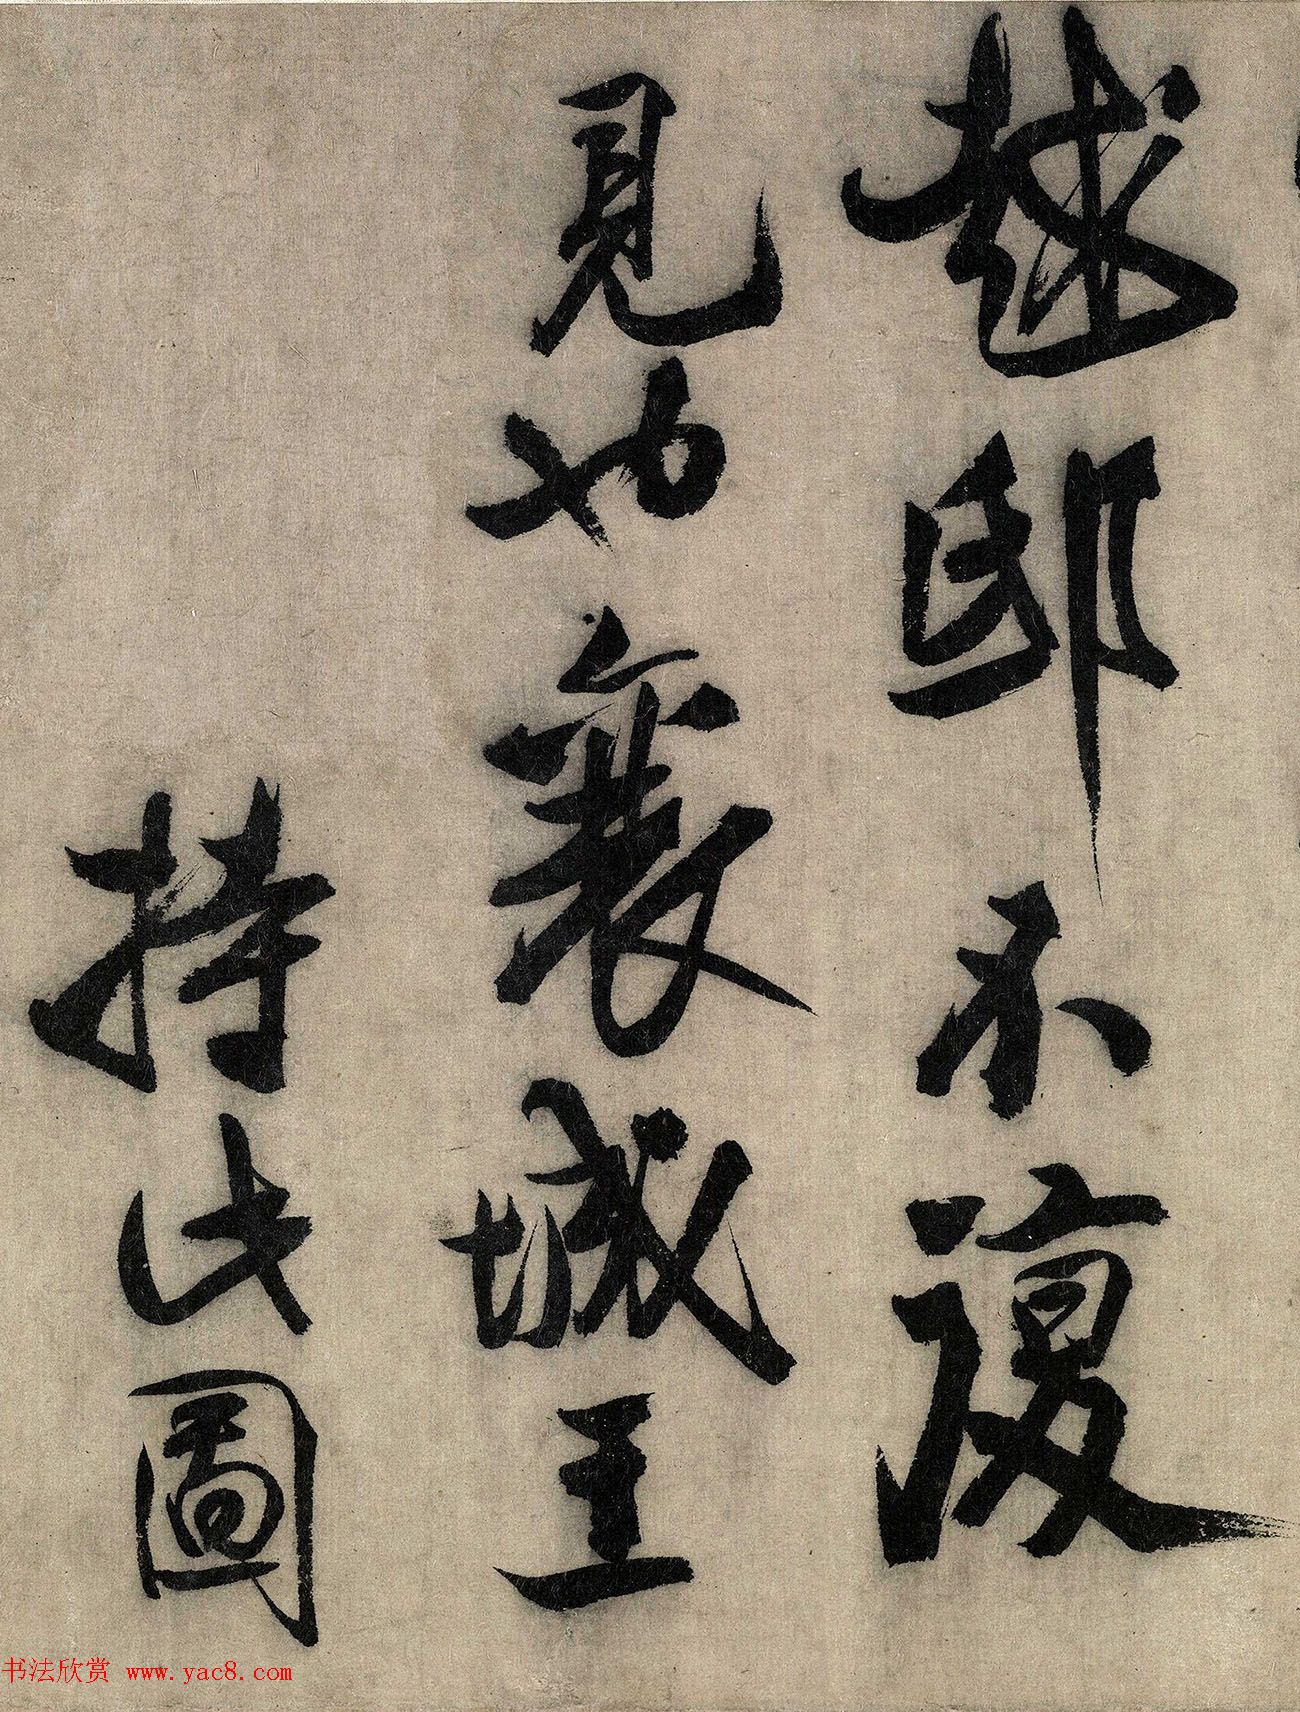 越邸不復
見也襄城王
持此圖
书法欣赏 www.yac8.com